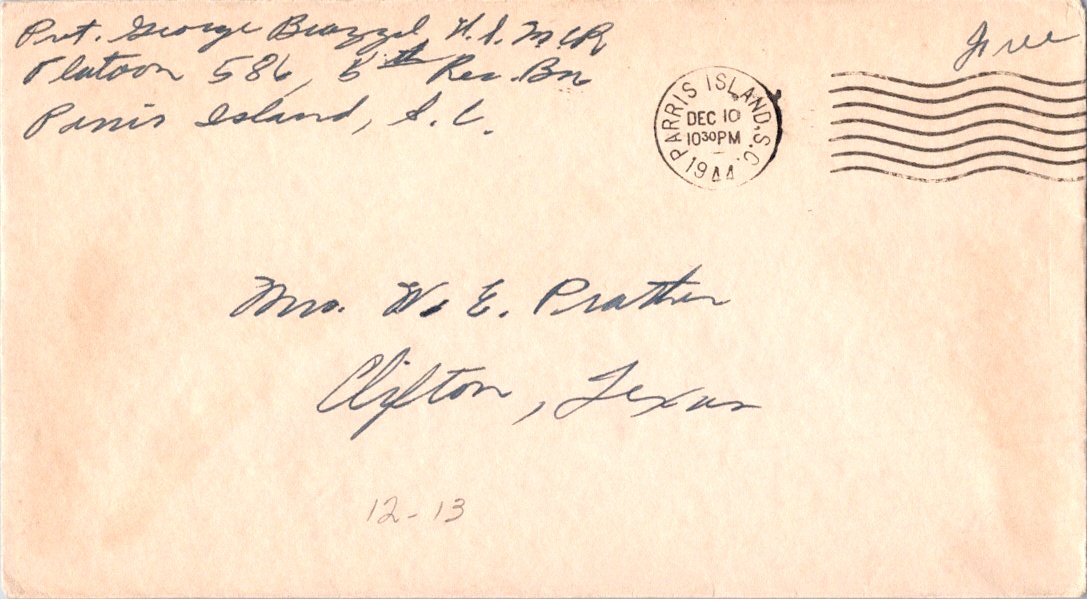 Pvt. George Brazzel, U.S.M.C.R
Platoon 586, 5th Rec. Bn
Parris Island, S.C.
Free
PARRIS ISLAND, S.C.
DEC 10
1030PM
1944
Mrs. W. E. Prather
Clifton, Texas
12-13